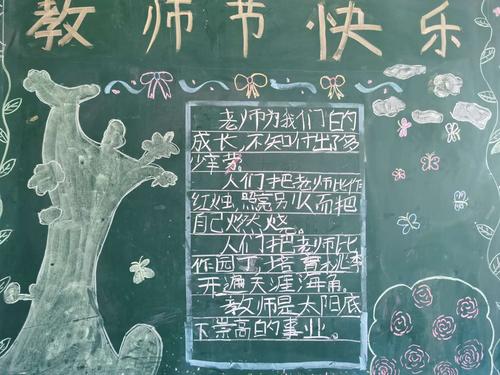 教师节快乐
老师为我们的
成长,不知付出了多
少辛苦。
人们把老师比作
红烛,照亮别人而把
自己燃烧。
人们把老师比
作园丁,培育桃李
开遍天涯海角。
教师是太阳底
下崇高的事业。